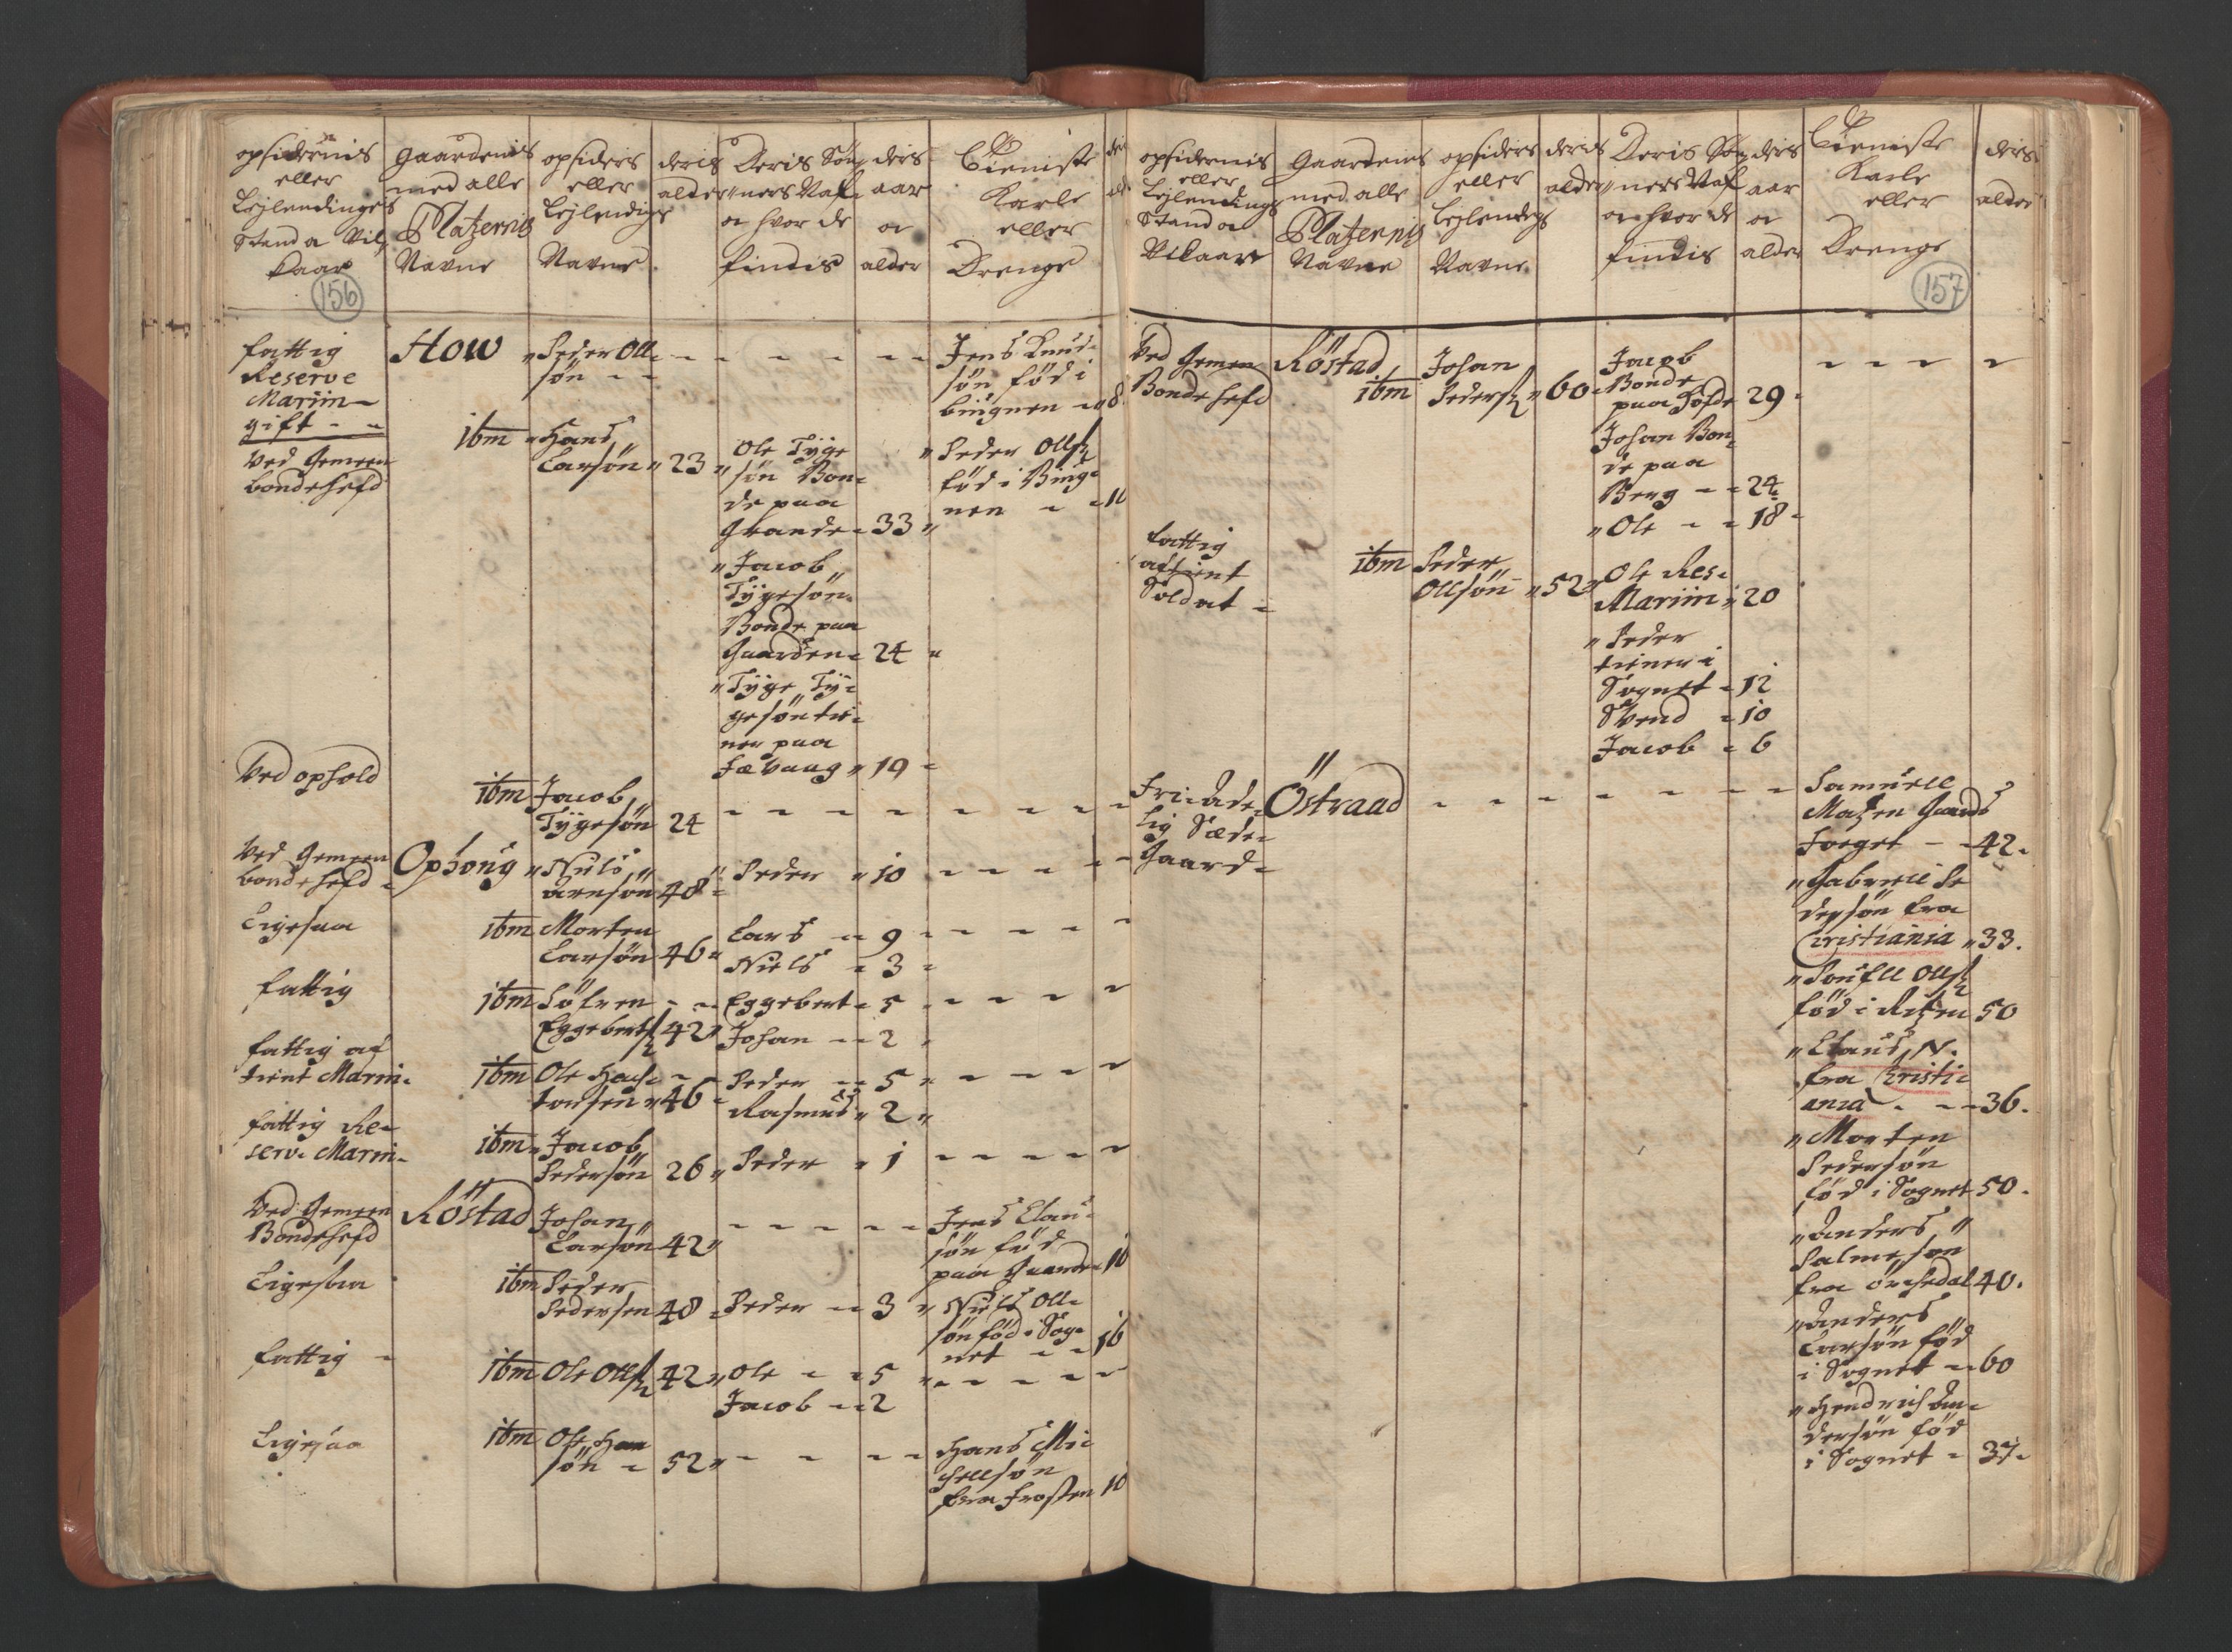 opsidernis
eller
Lejlendinges
Stand oc Vil,,
kaar
156
Gaardenis
med alle
Platzernis
Navne
opsiders
eller
Lejlendigs
Navne
deris
alder
Deris Søn,,
ners Nafn
oc hvor de
findis
ders
aar
oc
alder
Tieniste
Karle
eller
Drenge
fattig
Reserve
Mariin-
gift - -
How
Peder Oll-
søn - -
Jens Knud-
søn fød i
biugnen - 8
Ved Gemeen
bondehefd
ibm
Hans
Larsøn 23
Ole Tÿge
søn Bon-
de paa
Grande - 33
Jacob
Tÿgesøn
Bonde paa
Gaarden - 24
Tÿge Tÿ-
gesøn tie-
ner paa
Fævaag 19
Peder Ollss:
fød i Biug-
nen - - 10
Ved ophold
ibm
Jacob
Tÿgesøn 24
Ved Gemeen
bondehefd
Ophoug
Niels
arnsøn 48
Peder 10
Ligesaa
ibm
Morten
Larsøn 46
Lars - 9
Niels - 3
fattig
ibm
Søfren - -
Eggebertss: 42
Eggebert - 5
Johan - 2
fattig af
tient Marin-
ibm
Ole
tonsen 46
Peder - 5
Rasmus 2
fattig Re-
serve Marin-
ibm
Jacob
Pedersøn 26
Peder - 1
Ved Gemeen
Bondehefd
Röstad
Johan
Larsøn 42
Jens Clau-
søn fød
paa Gaarden 16
Ligesaa
ibm
Peder
Pedersen 48
Peder - 3
Niels Oll-
søn fød i Sog-
net - - 16
fattig -
ibm
Ole Ollss: 42
Ole - - 5
Jacob - 2
Ligesaa
ibm
Ole Han
søn - 52
Hans Mi-
hellsøn
fra Frosten 10
opsidernis
eller
Lejlendings
Stand oc
Vilkaar
Gaardenis
med alle
Platzernis
Navne
opsiders
eller
Lejlendigs
Navne
deris
alder
Deris Søn,,
ners Naf
oc hvor de
findis
ders
aar
oc
alder
Tieniste
Karle
eller
Drenge
157
ders
alder
Ved Gemen
Bondehefd
Röstad
ibm
Johan
Pederss: 60
Jacob
Bonde
paa Hofde 29
Johan Bon-
de paa
Berg - - 24
Ole - - 18
fattig
aftient
Soldat -
ibm
Peder
Ollsøn 52
Ole Res-
Mariin 20
Peder
tiener i
Sognet - 12
Svend - 10
Jacob - 6
Fri-Ade-
lig Sæde-
Gaard-
Östraad
Samuell
Matzen Gaards
Foeget - - 42
Gabriel Pe
dersøn fra
Cristiania 33.
Poufell Ollss:
fød i Ritzen 50
Claus N.
fra Cristi-
ania - - 36.
Morten
Pedersøn
fød i Sognet 50.
Anders
Salmeson
fra örchedal 40.
Anders
Larsøn fød
i Sognet - 60
Hendrich An-
dersøn fød
i Sognet - 37